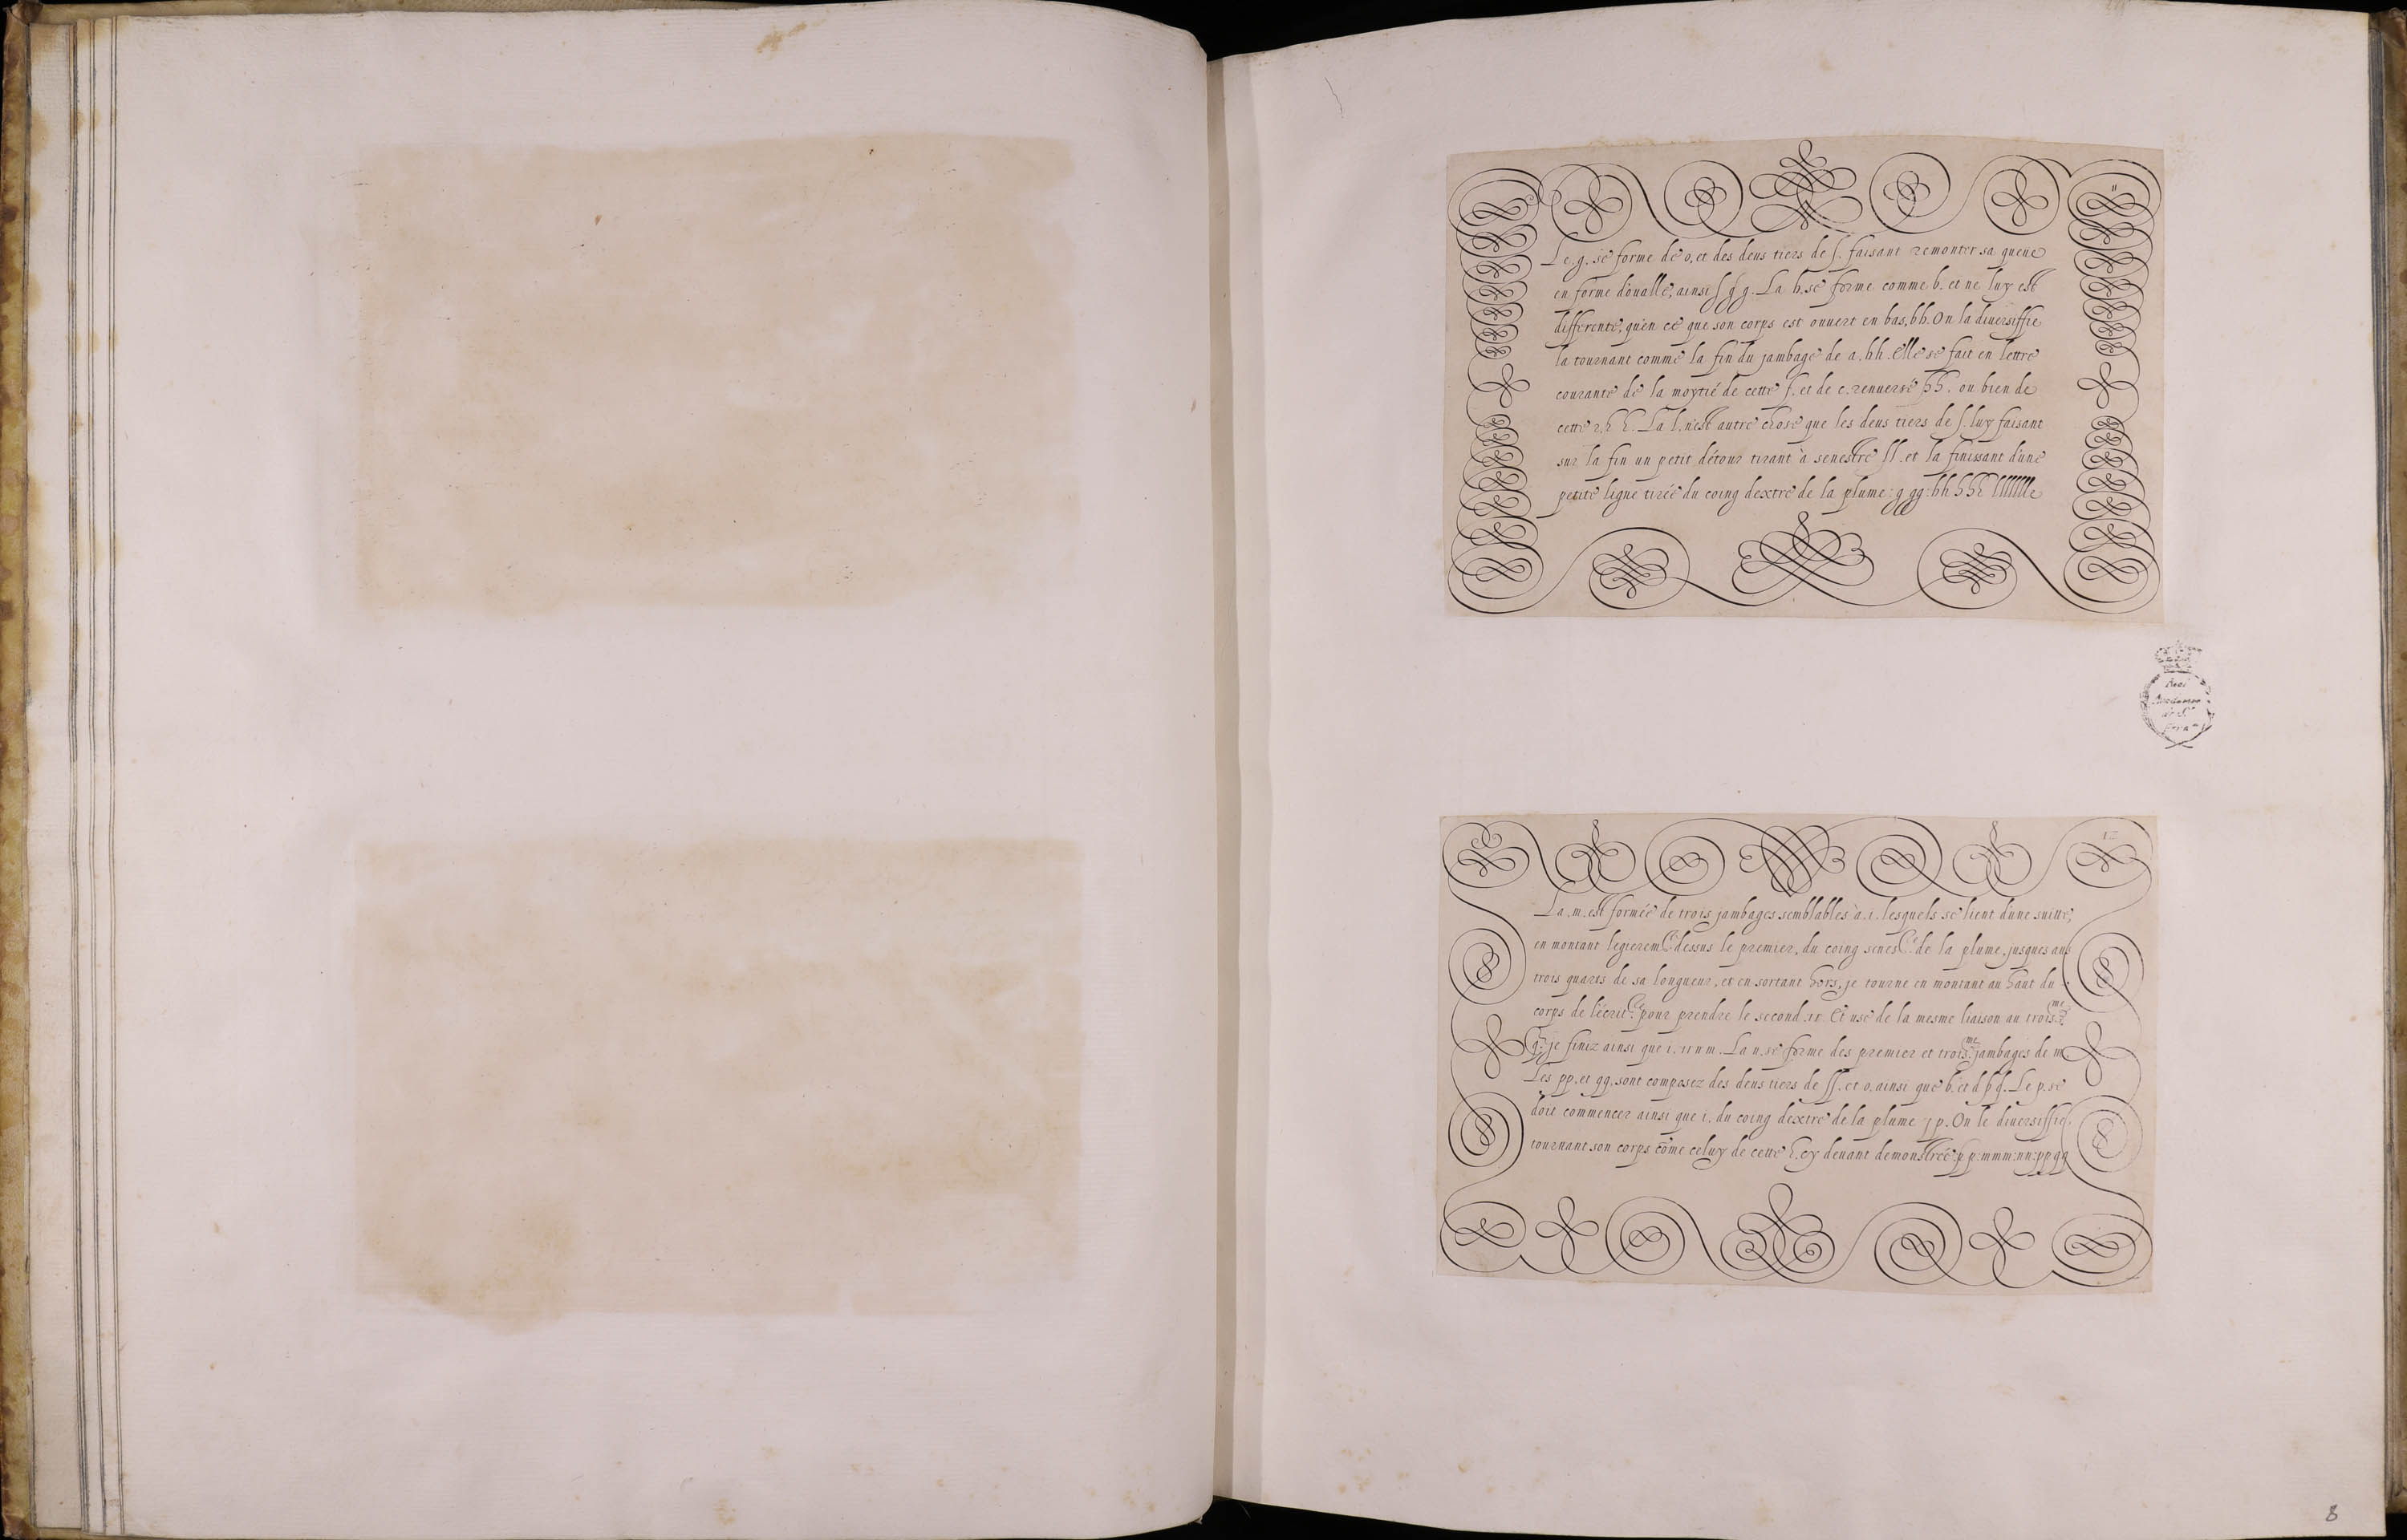 11
Le .g. se forme de o, et des deus tiers de ſ. faisant remonter sa queue
en forme d'oualle, ainsi ſ ɠ g. La h. se forme comme b. et ne luy est
differente, qu'en ce que son corps est ouuert en bas, b h. On la diuersiffie
la tournant comme la fin du jambage de a. h h. Elle se fait en lettre
courante de la moytié de cette ſ. et de c. renuersé h h. ou bien de
cette 2. h h. La l. n'est autre chose que les deus tiers de ſ. luy faisant
sur la fin un petit détour tirant à senestre ſ l. et la finissant d'une
petite ligne tirée du coing dextre de la plume: g gg: h h h h l l l l l l l e
Real
Academia
de Sn
Fern.do
12
La .m. est formée de trois jambages semblables à .i. lesquels se lient d'une suitte,
en montant legierem.t dessus le premier, du coing senest.e de la plume, jusques aus
trois quarts de sa longueur, et en sortant hors, je tourne en montant au haut du
corps de l'écrit.re pour prendre le second. ıı. Et use de la mesme liaison au trois.me
q. je finiz ainsi que i. ıı n m. La n. se forme des premier et trois.me jambages de m.
Les pp. et qq. sont composez des deus tiers de ſſ. et o. ainsi que b. et d. p q. Le p. se
doit commencer ainsi que i. du coing dextre de la plume ȷ p. On le diuersiffie,
tournant son corps cōme celuy de cette h. cy deuant demonstrée: p p: mmm: nn: pp qq
8